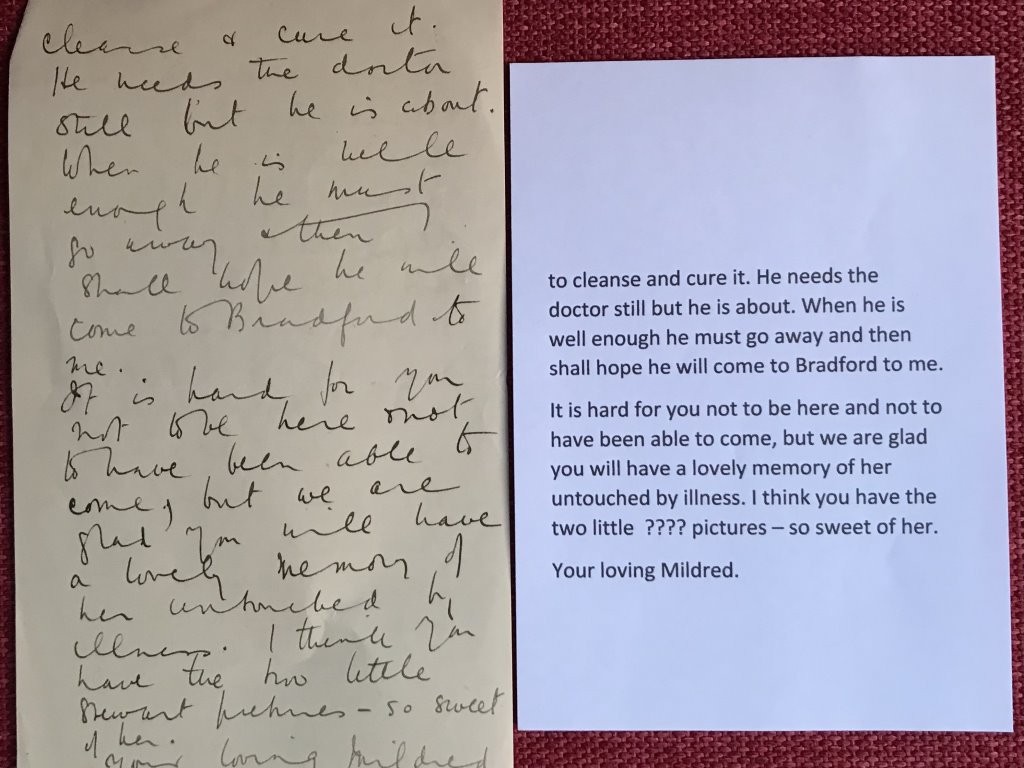 cleanse & cure it.
He needs the doctor
still but he is about.
When he is well
enough he must
go away & then I
shall hope he will
come to Bradford to
me.
It is hard for you
not to be here & not
to have been able to
come, but we are
glad you will have
a lovely memory of
her untouched by
illness. I think you
have the two little
Stewart pictures – so sweet
of her.
Your loving Mildred
to cleanse and cure it. He needs the
doctor still but he is about. When he is
well enough he must go away and then
shall hope he will come to Bradford to me.
It is hard for you not to be here and not to
have been able to come, but we are glad
you will have a lovely memory of her
untouched by illness. I think you have the
two little ???? pictures – so sweet of her.
Your loving Mildred.